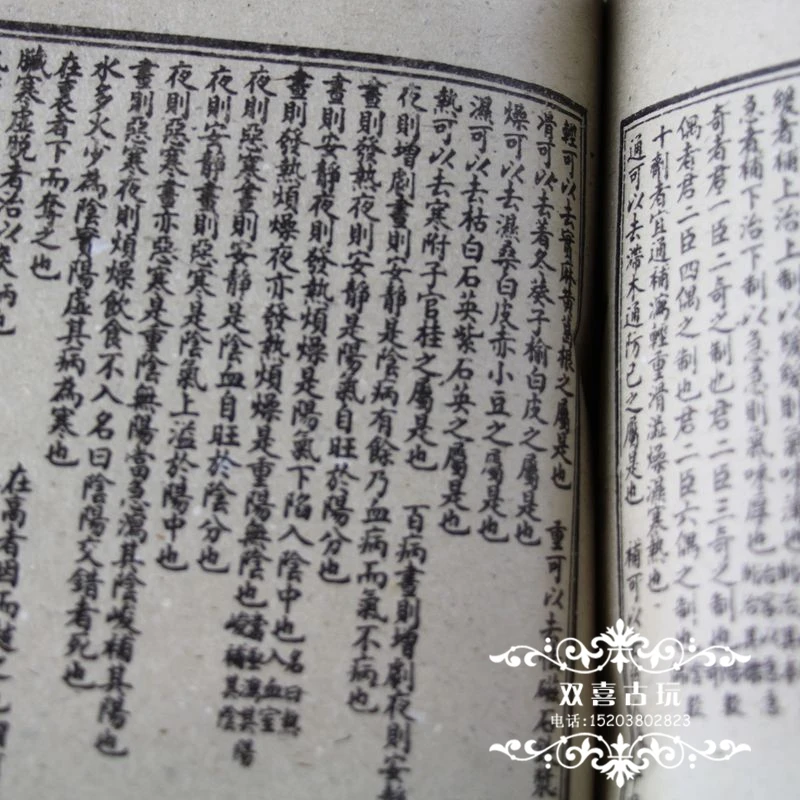 緩者補上治上制以緩緩則氣味薄也
急者補下治下制以急急則氣味厚也
奇者君一臣二奇之制也君二臣三奇之制也
偶者君二臣四偶之制也君二臣六偶之制
十劑者宜通補瀉輕重滑澁燥濕寒熱也
通可以去滯木通防己之屬是也 補可以
輕可以去實麻黃葛根之屬是也 重可以去
滑可以去着冬葵子榆白皮之屬是也
燥可以去濕桑白皮赤小豆之屬是也
濕可以去枯白石英紫石英之屬是也
熱可以去寒附子官桂之屬是也 百病晝則增劇夜則安靜
夜則增劇晝則安靜是陰病有餘乃血病而氣不病也
晝則發熱夜則安靜是陽氣自旺於陽分也
晝則安靜夜則發熱煩燥是陽氣下陷入陰中也名曰熱入血室
晝則發熱煩燥夜亦發熱煩燥是重陽無陰也當亟瀉其陽峻補其陰
夜則惡寒晝則安靜是陰血自旺於陰分也
夜則安靜晝則惡寒是陰氣上溢於陽中也
夜則惡寒晝亦惡寒是重陰無陽當急瀉其陰峻補其陽也
晝則惡寒夜則煩燥飲食不入名曰陰陽交錯者死也
水多火少為陰實陽虛其病為寒也
在裏者下而奪之也 在高者因而越之也
臟寒虛脫者治以
双喜古玩
电话:15203802823